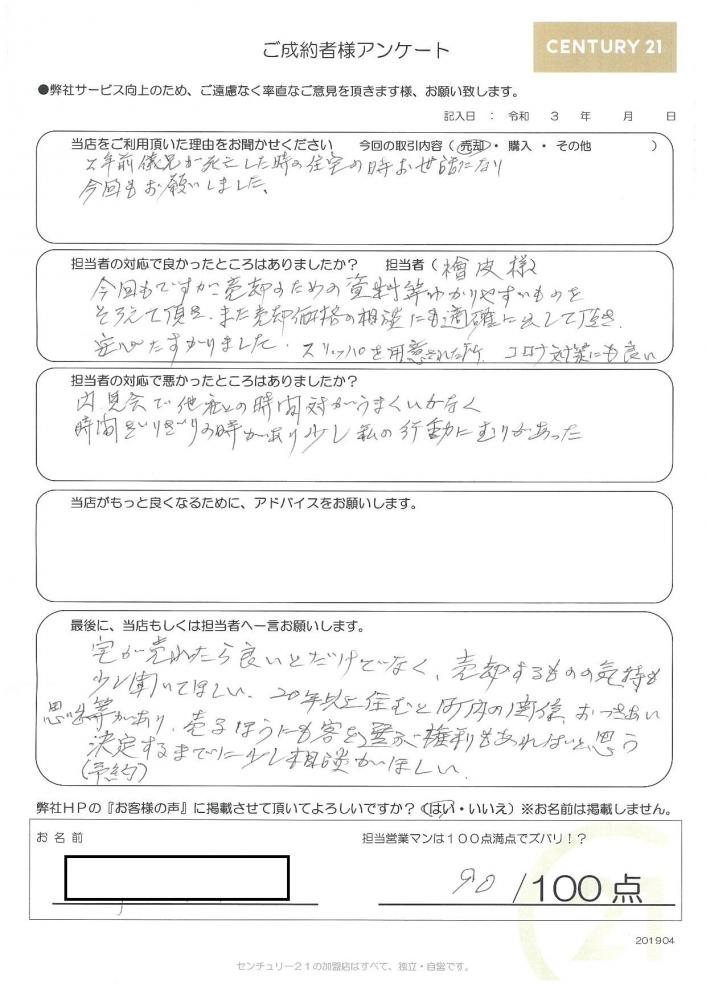 ご成約者様アンケート
CENTURY 21
●弊社サービス向上のため、ご遠慮なく率直なご意見を頂きます様、お願い致します。
記入日： 令和 3 年 月 日
当店をご利用頂いた理由をお聞かせください 今回の取引内容（売却・購入・その他 ）
年前義兄が死亡した時の住宅の時お世話になり
今回もお願いしました、
担当者の対応で良かったところはありましたか？ 担当者（檜皮様）
今回もですが売却のための資料等わかりやすいものを
そろえて頂き、また売却価格の相談にも適確に出して頂き、
安心たすかりました。スリッパを用意された所、コロナ対策にも良い
担当者の対応で悪かったところはありましたか？
内見会で他社との時間対がうまくいかなく
時間ぎりぎりの時があり少し私の行動にむりがあった
当店がもっと良くなるために、アドバイスをお願いします。
最後に、当店もしくは担当者へ一言お願いします。
宅が売れたら良いとだけでなく、売却するものの気持も
少し聞いてほしい、20年以上住むと町内の関係、おつきあい
思い等があり、売るほうにも客を選ぶ権利もあればと思う
決定するまでに少し相談がほしい、
(予約)
弊社ＨＰの『お客様の声』に掲載させて頂いてよろしいですか？（はい・いいえ）※お名前は掲載しません。
お名前
担当営業マンは１００点満点でズバリ！？
90/100点
21
201904
センチュリー２１の加盟店はすべて、独立・自営です。